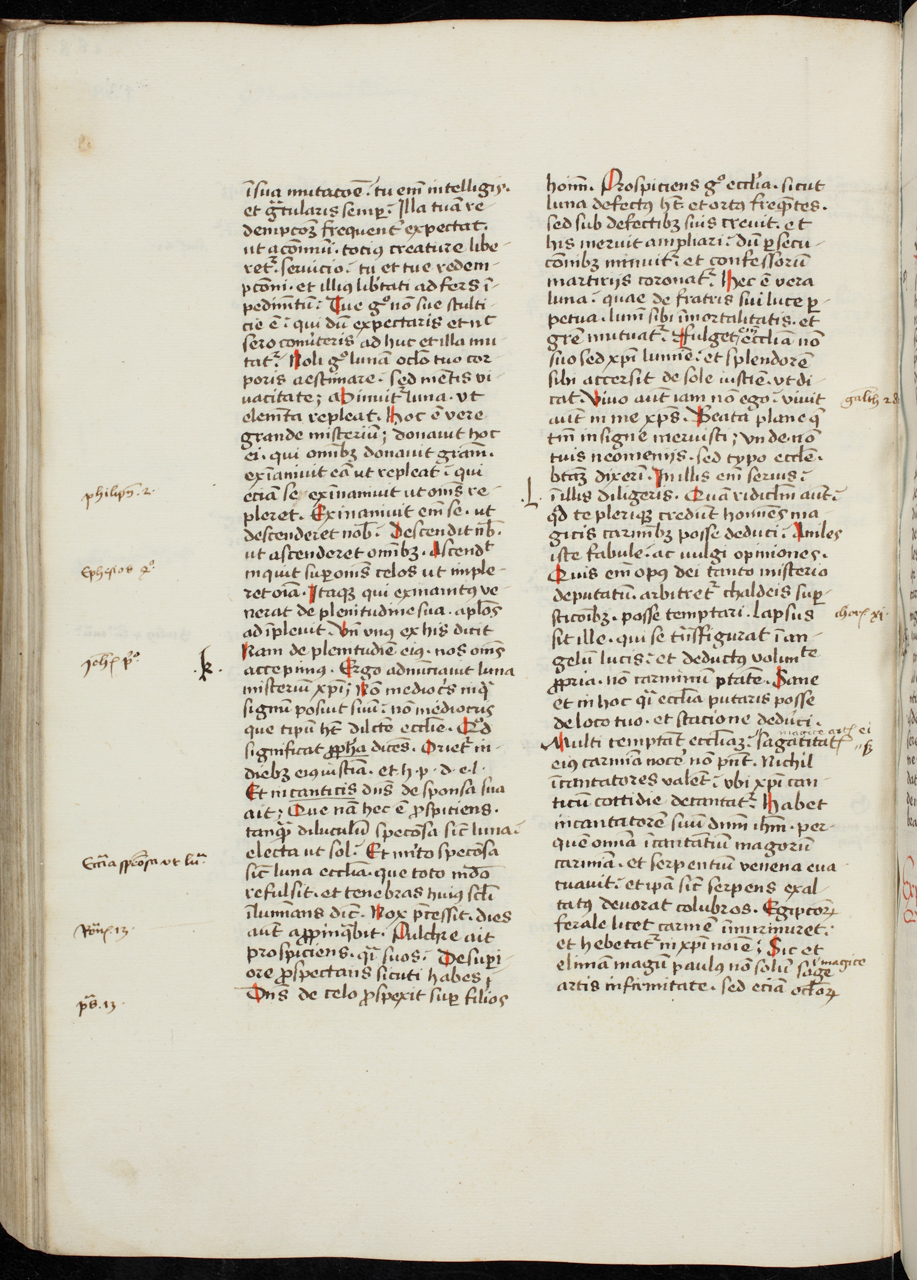 īsua mutacōe. tu em̄ intelligis.
et gᵃtularis semp̄. Illa tuā re-
dempcoꝫ frequent᷑ expectat.
ut a cōmūi. totius creature libe-
ret᷑. seruicio. tu et tue redem-
pcōni. et illius lib̄tati ad fers ī-
pedim̄tū. Tue gᵒ nō sue stulti-
cie ē. qui dū expectaris et nͨ
sero cōuteris ad huc et illa mu
tat᷑. Noli gᵒ lunā oclō tuo cor
poris aestimare. sed mētis vi-
uacitate; Minuit᷑ luna. ut
elem̄ta repleat. Hoc ē vere
grande misteriū; donauit hoc
ei. qui omībꝫ donauit grām.
exīaniuit eā ut repleat. qui
eciā se exīnaniuit ut om̄s re-
pleret. Exinaniuit em̄ se. ut
descenderet nob̄. Descendit nb̄.
ut ascenderet omībꝫ. Ascend᷑
inquit sup om̄s celos ut imple-
ret oīa. Itaqꝫ qui exinanitꝰ ve-
nerat de plenitudine sua. aplōs
ad īpleuit. Vn̄ vnꝰ ex his dicit
Nam de plenitudīe eiꝰ. nos om̄s
accepimꝰ. Ergo adnūciauit luna
misteriū xpī; Nō mediocͥs inqͣ
signū posuit suū. nō mediocris
que tipū hēt dilcte ecclīe. Qd̄
significat ꝓph̄a dices. Oriet᷑ in-
diebꝫ eiꝰ iustīa. et h. p. d. e. l.
Et in canticis dn̄s de sponsa sua
ait; Que nā hec ē ꝓspitiens.
tanqͣ diluculū specōsa sic̄ luna.
electa ut sol. Et mīto specōsa
sic̄ luna ecclīa. que toto mdō
refulsit. et tenebras huiꝰ sclī
īlumīans dic̄. Nox p̄cessit. dies
aut̄ appīnqͣbit. Pulchre ait
prospiciens. qͣī suos. Desupi-
ore ꝓspectans sicuti habes;
Dn̄s de celo ꝓspexit sup filios
philip̄. 2.
Ephesios 4ᵒ
Joh̄ pᵒ
.k.
Ecclīa spōsa vt luᵃ
Rōm̄ 13
ps̄. 13
hoīm. Prospiciens gᵒ ecclīa. sicut
luna defectꝰ hēt et ortꝰ freqn̄tes.
sed sub defectibꝫ suis creuit. et
his meruit ampliari. dū ꝑsecu-
cōnibꝫ minuit᷑. et confessorū
martirijs coronat᷑. Hec ē vera
luna. quae de fratris sui luce ꝑ-
petua. lum̄ sibi īmortalitatis. et
grē mutuat᷑. Fulget em̄ ecclīa nō
suo sed xpī lumīe. et splendorē
sibi accersit de sole iustīe. ut di
cat. Viuo aut̄ iam nō ego. viuit
aut̄ in me xps̄. Beata plane q̄
tm̄ insigne meruisti; vnde nō
tuis neomenijs. sed typo ecclē.
btāꝫ dixerī. In illis em̄ seruis.
ī illis diligeris. Quā ridiclm̄ aut̄.
qd̄ te pleriqꝫ credūt homīes ma-
gicis carmībꝫ posse deduci. Aniles
iste fabule. ac uulgi opiniones.
Quis em̄ opꝰ dei tanto misterio
deputatū. arbitret᷑ chaldeis sup-
sticōibꝫ. posse temptari. lapsus
sit ille. qui se trāsfigurat ī an-
gelū lucis. et deductꝰ volunte
ꝓpria. nō carminū ptāte. Sane
et in hoc qͣī ecclīa putaris posse
de loco tuo. et stacione deduci.
Multi temptāt ecclīaꝫ. sagatitatꝭ
eiꝰ carmīa noce᷑ nō pn̄t. Nichil
īcantatores valēt. vbi xpī can-
ticū cottidie decantat᷑. Habet
incantatorē suū dnm̄ ihm̄. per-
quē omīa īcantatiū magorū
carmīa. et serpentiū venena eua
cuauit. et ipā sic̄ serpens exal-
tatꝰ deuorat colubros. Egipcoꝝ
ferale licet carmē īmurmuret.
et hebetat᷑ in xpī noīe. Sic et
elimā magū paulꝰ nō solū sage
artis infirmitate. sed eciā oclōꝝ
galath 2
.L.
magice